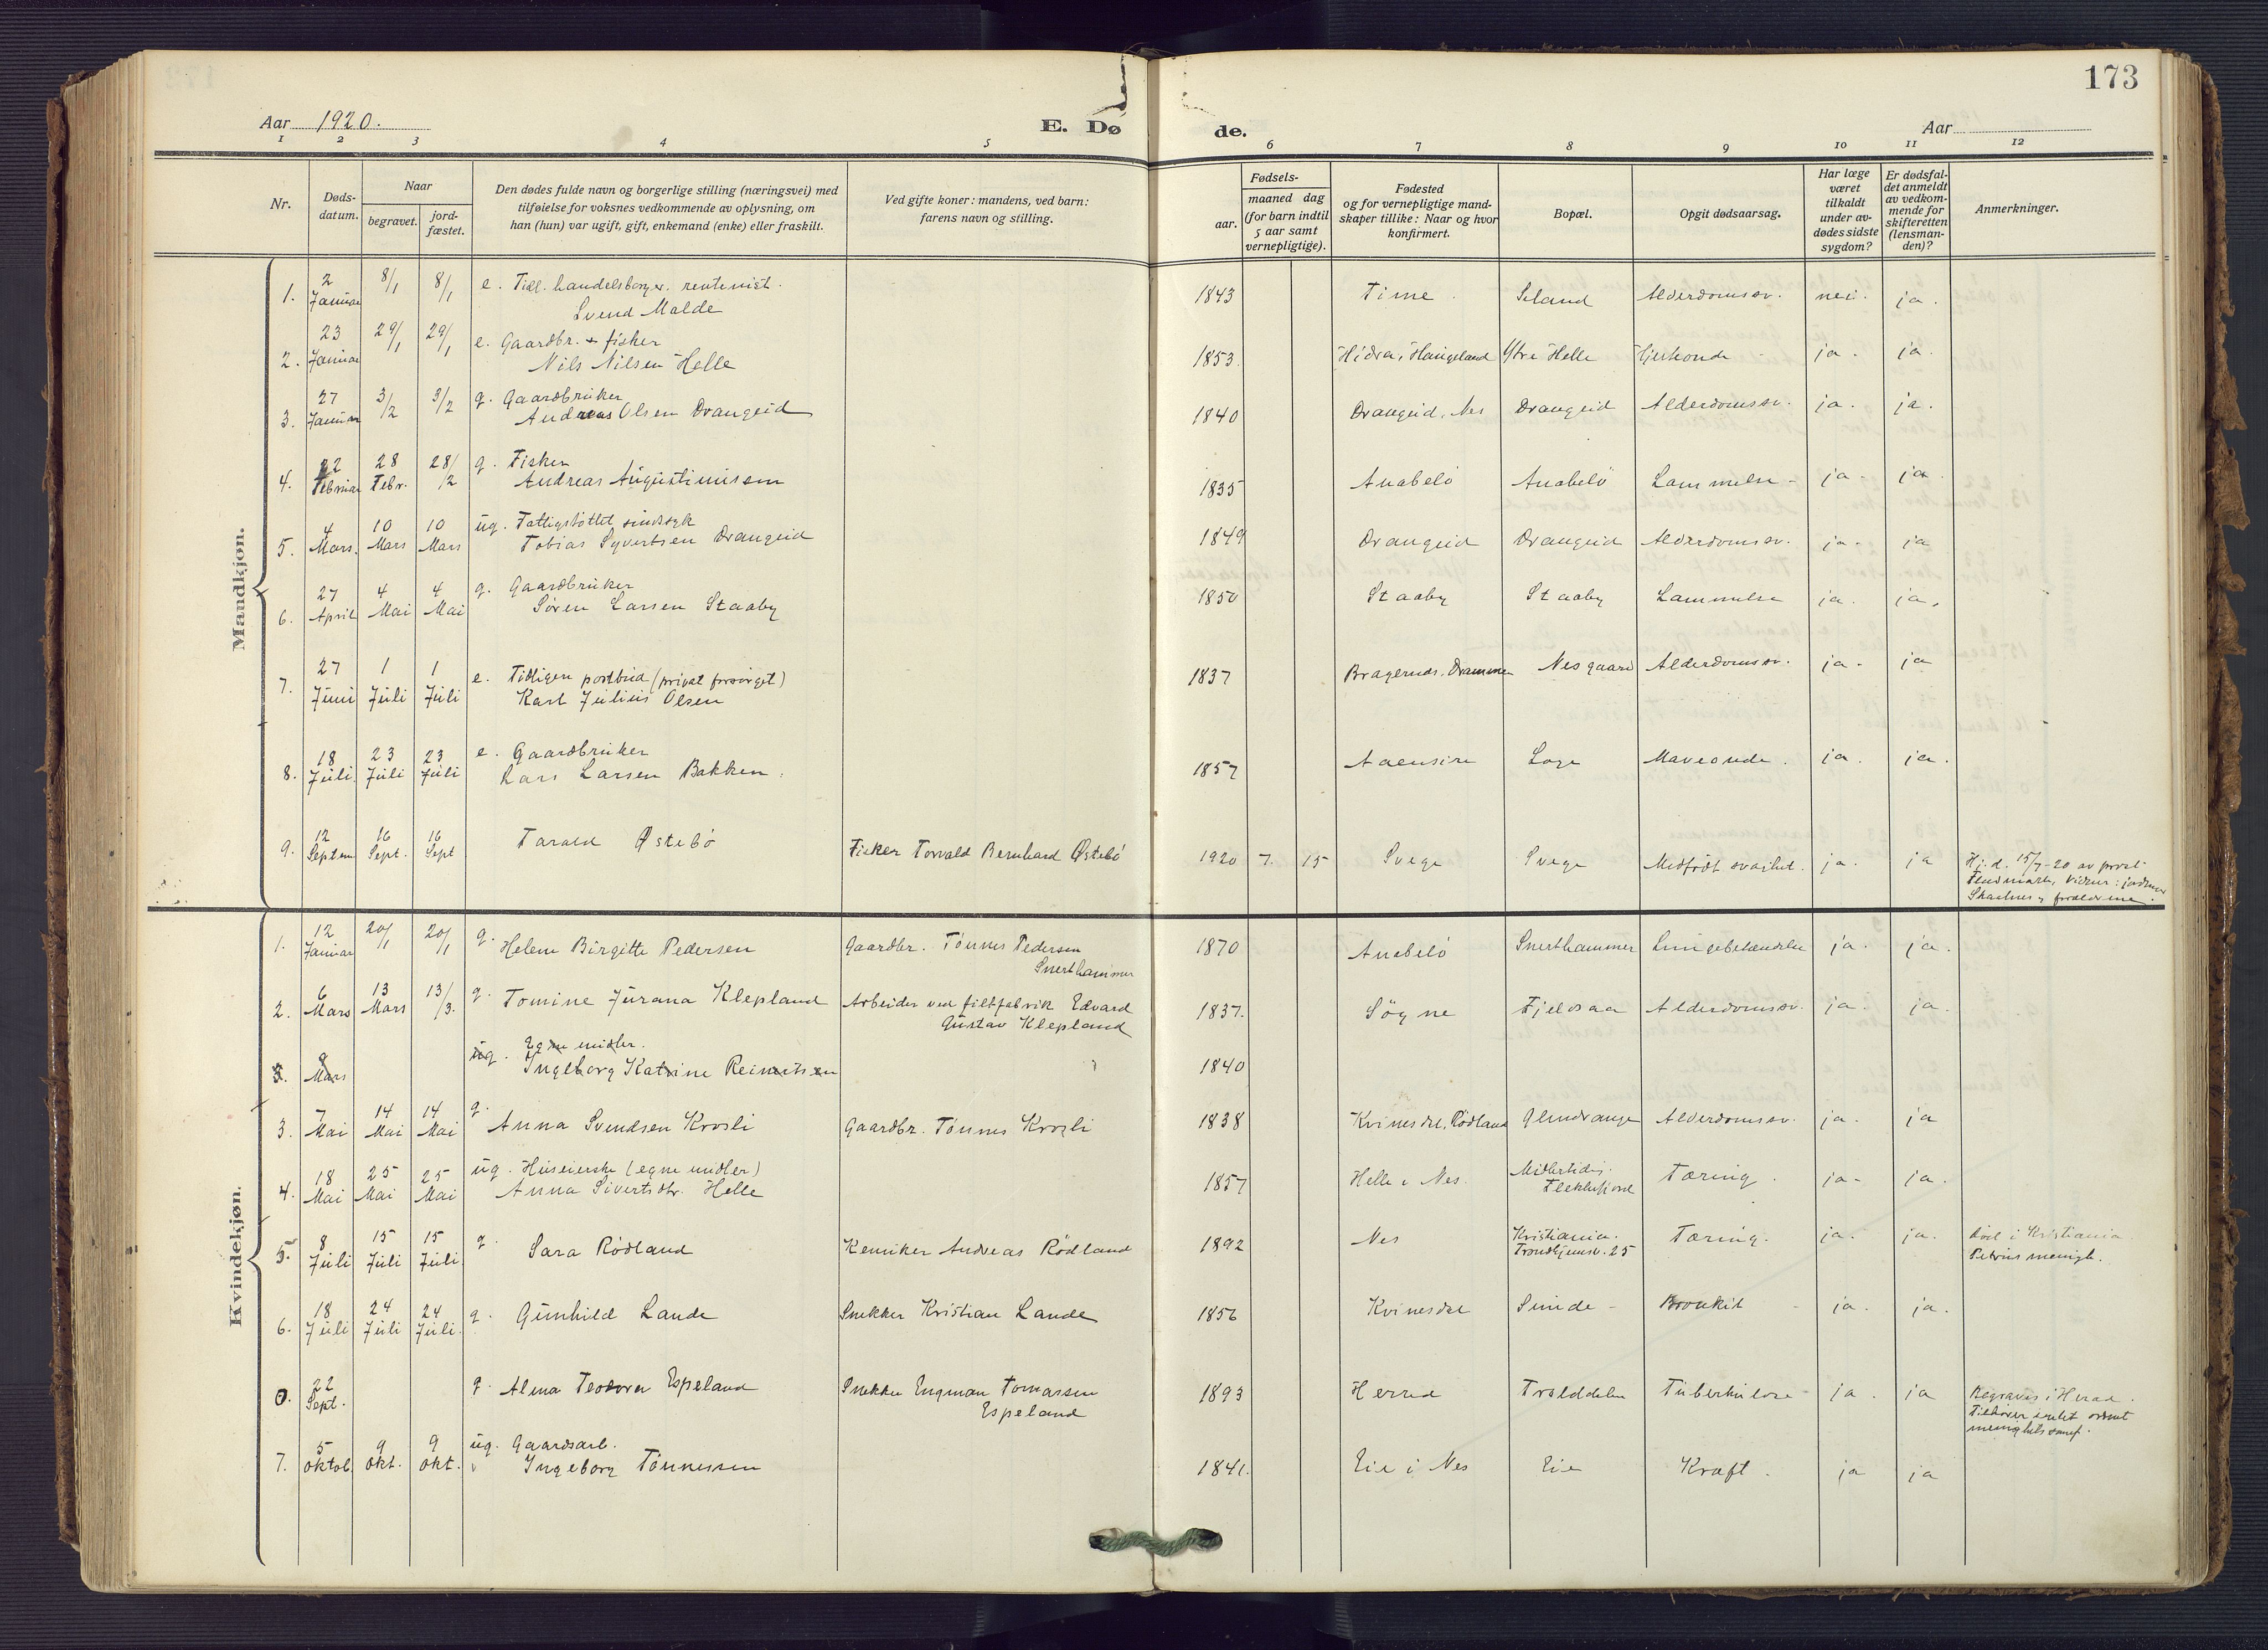 173
Aar 1920.
E. Dø de.
Aar
1 2 3 4 5 6 7 8 9 10 11 12
Nr.
Døds-
datum.
Naar
begravet.
jord-
fæstet.
Den dødes fulde navn og borgerlige stilling (næringsvei) med
tilføielse for voksnes vedkommende av oplysning, om
han (hun) var ugift, gift, enkemand (enke) eller fraskilt.
Ved gifte koner: mandens, ved barn:
farens navn og stilling.
Fødsels-
aar.
maaned dag
(for barn indtil
5 aar samt
vernepligtige).
Fødested
og for vernepligtige mand-
skaper tillike: Naar og hvor
konfirmert.
Bopæl.
Opgit dødsaarsag.
Har læge
været
tilkaldt
under av-
dødes sidste
sygdom?
Er dødsfal-
det anmeldt
av vedkom-
mende for
skifteretten
(lensman-
den)?
Anmerkninger.
Mandkjøn.
1. 2 Januar 8/1 8/1 e. Tidl. handelsborger. rentenist.
Svend Malde 1843 Time Seland Alderdomssv. nei. ja.
2. 23 Januar 29/1 29/1 e. Gaardbr. + fisker
Nils Nilsen Helle 1853. Hidra, Haugeland Ytre Helle Hjerteonde ja. ja.
3. 27 Januar 3/2 3/2 g. Gaardbruker
Andreas Olsen Drangeid 1840 Drangeid, Nes Drangeid Alderdomssv. ja. ja.
4. 22 Februar 28 Febr. 28/2 g. Fisker
Andreas Augustinusen 1835 Anabelø Anabelø Lammelse ja. ja
5. 4 Mars. 10 Mars 10 Mars ug. Fattigstøttet sindssyk
Tobias Syvertsen Drangeid 1849 Drangeid Drangeid Alderdomssv. ja. ja
6. 27 April 4 Mai 4 Mai g. Gaardbruker
Søren Larsen Staaby 1850 Staaby Staaby Lammelse ja. ja.
7. 27 Juni 1 Juli 1 Juli e. Tidligere postbud (privat forsørget)
Karl Julius Olsen 1837 Bragernes, Drammen Nesgaard Alderdomssv. ja. ja
8. 18 Juli. 23 Juli 23 Juli e. Gaardbruker
Lars Larsen Bakken. 1857 Aaensire Loge Maveonde. ja. ja.
9. 12 Septem 16 Sept. 16 Sept Tarald Østebø Fisker Torvald Bernhard Østebø 1920 7. 15 Svege Svege Medfødt svaghet. ja. ja Hj.d. 15/7-20 av prost
Flodmark, Vidner: jordmor
forældrene.
Kvindekjøn.
1. 12 Januar 20/1 20/1 g. Helene Birgitte Pedersen Gaardbr. Tønnes Pedersen
Snerthammer 1870 Anabelø Snerthammer Lungebetændelse ja. ja.
2. 6 Mars 13 Mars 13/3. g. Tomine Jurana Klepland Arbeider ved filtfabrik Edvard
Gustav Klepland 1837. Søgne Fjeldsaa Alderdomssv. ja. ja.
3. 9 Mars ug. Egne midler.
Ingeborg Katrine Reinertsen 1840
3. 7 Mai 14 Mai 14 Mai g. Anna Svendsen Krosli Gaardbr. Tønnes Krosli 1838 Kvinesdal, Rødland Glendrange Alderdomssv. ja. ja
4. 18 Mai 25 Mai 25 Mai ug. Huseierske (egne midler)
Anna Sivertsdtr. Helle 1857 Helle i Nes. Midlertidig.
Flekkefjord Tæring. ja. ja.
5. 8 Juli 15 Juli 15 Juli. g. Sara Rødland Kemiker Andreas Rødland 1892 Nes Kristiania.
Trondhjemsv. 25 Tæring. ja. ja. død i Kristiania.
Petrus menigh.
6. 18 Juli 24 Juli 24 Juli. g. Gunhild Lande Snekker Kristian Lande 1856 Kvinesdal Sunde Bronkit ja. ja.
0. 22 Sept. g. Alma Teodora Espeland Snekker Engman Tomassen
Espeland 1893 Herred Trælddelen Tuberkulose ja. ja Begraves i Herad.
Tilhører intet ordnet
menighetssamf.
7. 5 Oktob. 9 Okt. 9 Okt. ug. Gaardsarb.
Ingeborg Tønnessen 1841. Eie i Nes Eie Kræft. ja ja